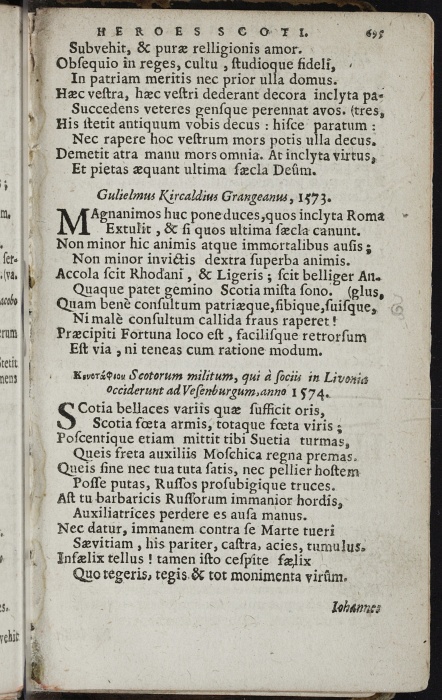 HEROES SCOTI. 695
Subvehit, & puræ relligionis amor.
Obsequio in reges, cultu, studioque fideli,
In patriam meritis nec prior ulla domus.
Hæc vestra, hæc vestri dederant decora inclyta pa-
Succedens veteres gensque perennat avos. (tres,
His stetit antiquum vobis decus: hisce paratum:
Nec rapere hoc vestrum mors potis ulla decus.
Demetit atra manu mors omnia. At inclyta virtus,
Et pietas æquant ultima sæcla Deûm.
Gulielmus Kircaldius Grangeanus, 1573.
MAgnanimos huc pone duces, quos inclyta Roma
Extulit, & si quos ultima sæcla canunt.
Non minor hic animis atque immortalibus ausis;
Non minor invictis dextra superba animis.
Accola scit Rhodani, & Ligeris; scit belliger An-
Quaque patet gemino Scotia mista sono. (glus,
Quam benè consultum patriæque, sibique, suisque,
Ni malè consultum callida fraus raperet!
Præcipiti Fortuna loco est, facilisque retrorsum
Est via, ni teneas cum ratione modum.
Κενοτάφιον Scotorum militum, qui à sociis in Livonia
occiderunt ad Vesenburgum, anno 1574.
SCotia bellaces variis quæ sufficit oris,
Scotia fœta armis, totaque fœta viris;
Poscentique etiam mittit tibi Suetia turmas,
Queis freta auxiliis Moschica regna premas.
Queis sine nec tua tuta satis, nec pellier hostem
Posse putas, Russos prosubigique truces.
Ast tu barbaricis Russorum immanior hordis,
Auxiliatrices perdere es ausa manus.
Nec datur, immanem contra se Marte tueri
Sævitiam, his pariter, castra, acies, tumulus.
Infælix tellus! tamen isto cespite fælix
Quo tegeris, tegis & tot monimenta virûm.
Iohannes